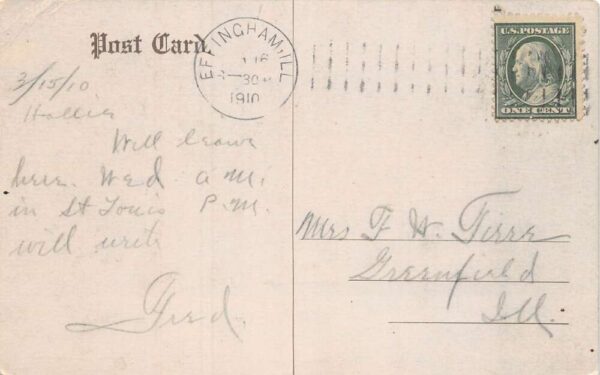 Post Card.
EFFINGHAM, ILL
30
1910
U.S. POSTAGE
ONE CENT
3/15/10
Hallie
Will leave
here Wed a M.
in St Louis P.M.
will write
Fred.
Mrs F H.
Greenfield
Ill